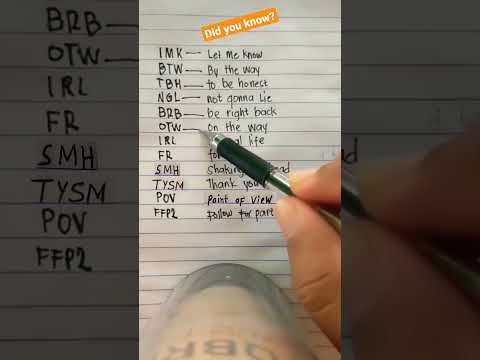 Did you know?
IMK — Let me know
BTW — By the way
TBH — to be honest
NGL — not gonna Lie
BRB — be right back
OTW — on the way
IRL life
FR
SMH Shaking
TYSM Thank you
POV Point of View
FFP2 Follow for part
BRB
OTW
IRL
FR
SMH
TYSM
POV
FFP2